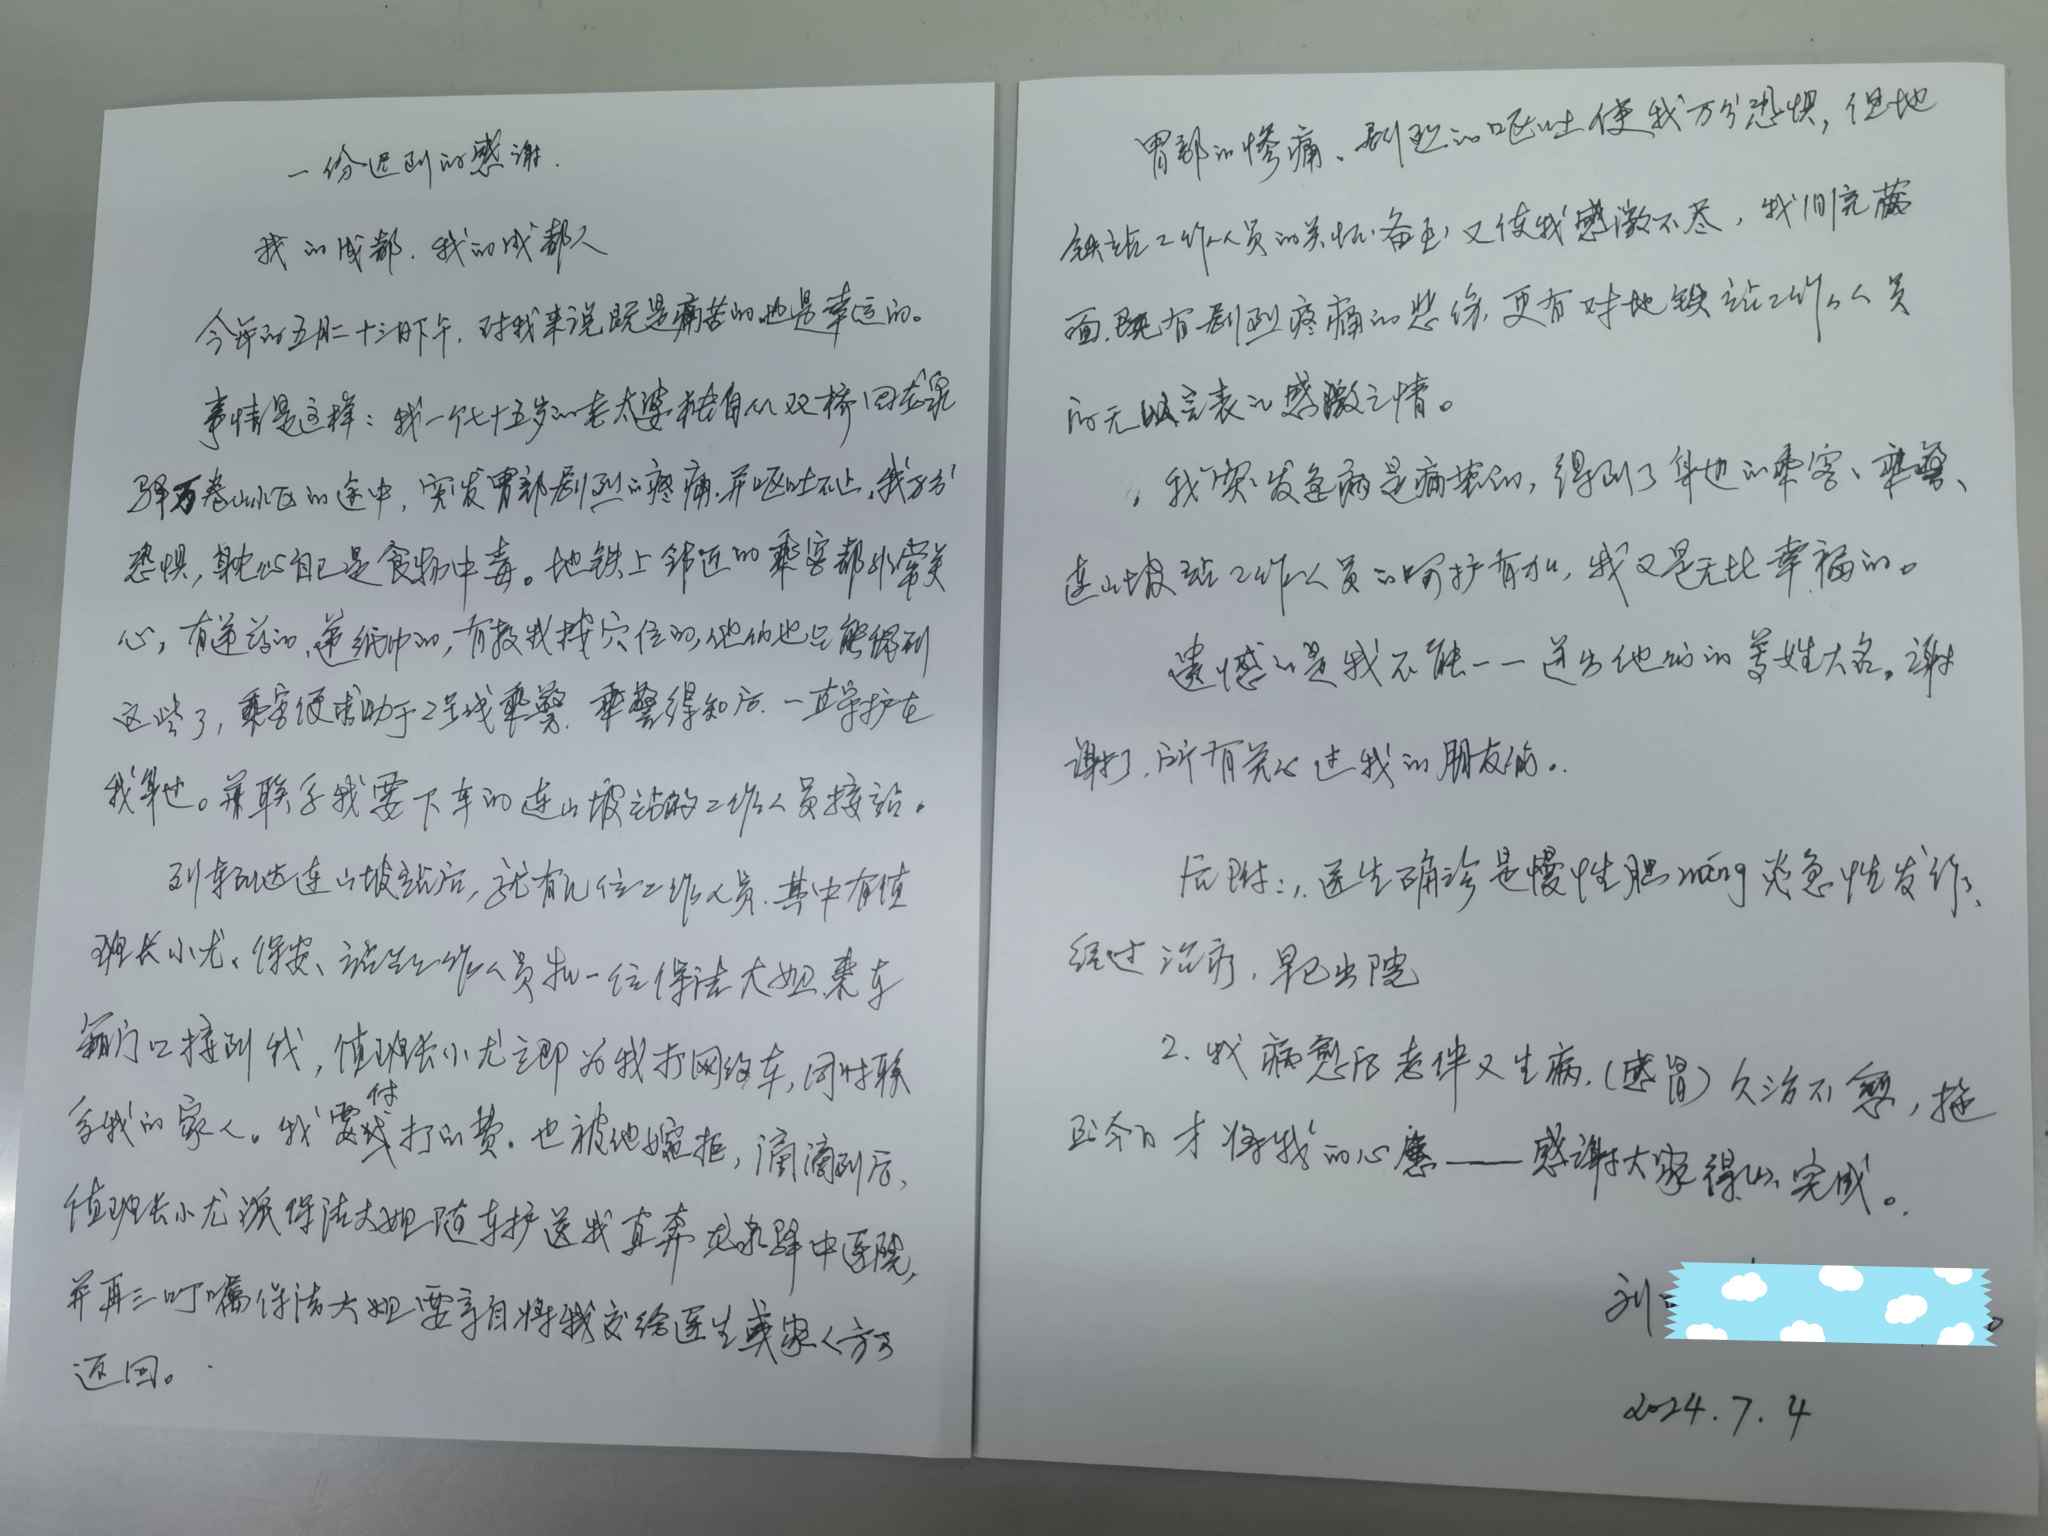 一份迟到的感谢.
我的成都.我的成都人
今年的五月二十三日下午.对我来说既是痛苦的.也是幸运的。
事情是这样:我一个七十五岁的老太婆独自从双桥回龙泉
驿万卷山小区的途中,突发胃部剧烈的疼痛.并呕吐不止,我万分
恐惧,耽心自已是食物中毒。地铁上邻近的乘客都非常关
心,有递药的、递纸巾的,有教我按穴位的,他们也只能得到
这些了,乘客便求助于2号线乘警.乘警得知后.一直守护在
我身边。并联系我要下车的连山坡站的工作人员接站。
到车到达连山坡站后,就有几位工作人员.其中有值
班长小尤、保安、站台工作人员和一位保洁大姐.乘车
箱门口接到我,值班长小尤立即为我打网约车,同时联
系我的家人。我要付打的费.也被他婉拒,滴滴到后,
值班长小尤派保洁大姐随车护送我直奔龙泉驿中医院,
并再三叮嘱保洁大姐要亲自将我交给医生或家人方可
返回。
胃部的惨痛、剧烈的呕吐使我万分恐惧,但地
铁站工作人员的关怀备至又使我感激不尽,我们完
面.既有剧烈疼痛的悲伤.更有对地铁站工作人员
的无以言表的感激之情。
我突发急病是痛苦的,得到了身边的乘客、乘警、
连山坡站工作人员的呵护有加,我又是无比幸福的。
遗憾的是我不能一一道出他们的尊姓大名。谢
谢了.所有关心过我的朋友们。
后附:1.医生确诊是慢性胆náng炎急性发作、
经过治疗.早已出院
2.我病愈后老伴又生病.(感冒)久治不愈,拖
至今日才将我的心愿——感谢大家得以完成。
刘
2024.7.4